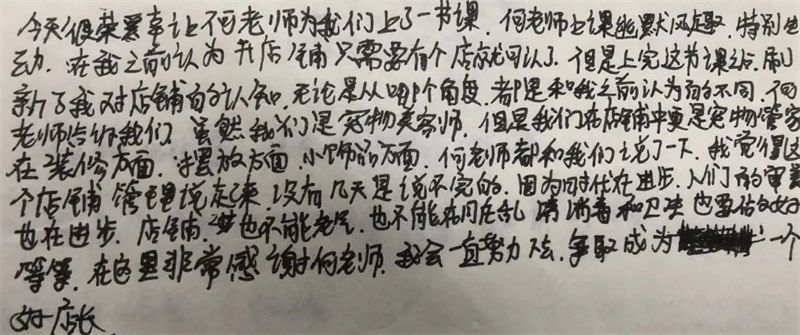 今天很荣幸让何老师为我们上了一节课，何老师上课幽默风趣，特别生
动，在我之前认为开店铺只需要有个店就可以了，但是上完这节课之后，刷
新了我对店铺的认知，无论是从哪个角度，都是和我之前认为的不同，何
老师给你我们 虽然我们是宠物美容师，但是我们在店铺中更是宠物管家
在装修方面，摆放方面，小饰品方面，何老师都和我们说了一下，我觉得这
个店铺管理说起来 没有几天是说不完的，因为时代在进步，人们的审美
也在进步，店铺 也不能老是 也不能 乱 消毒和卫生也要做好
等等，在这里非常感谢何老师，我会一直努力 ，争取成为 一个
好店长